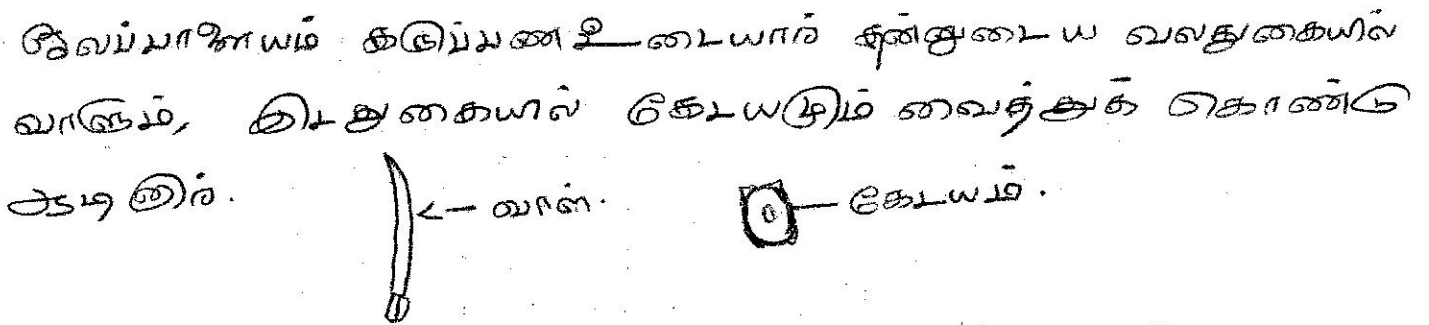 வேலப்பாளையம் கருப்பண உடையார் தன்னுடைய வலதுகையில்
வாளும், இடதுகையில் கேடயமும் வைத்துக் கொண்டு
ஆடினார்.
வாள். கேடயம்.